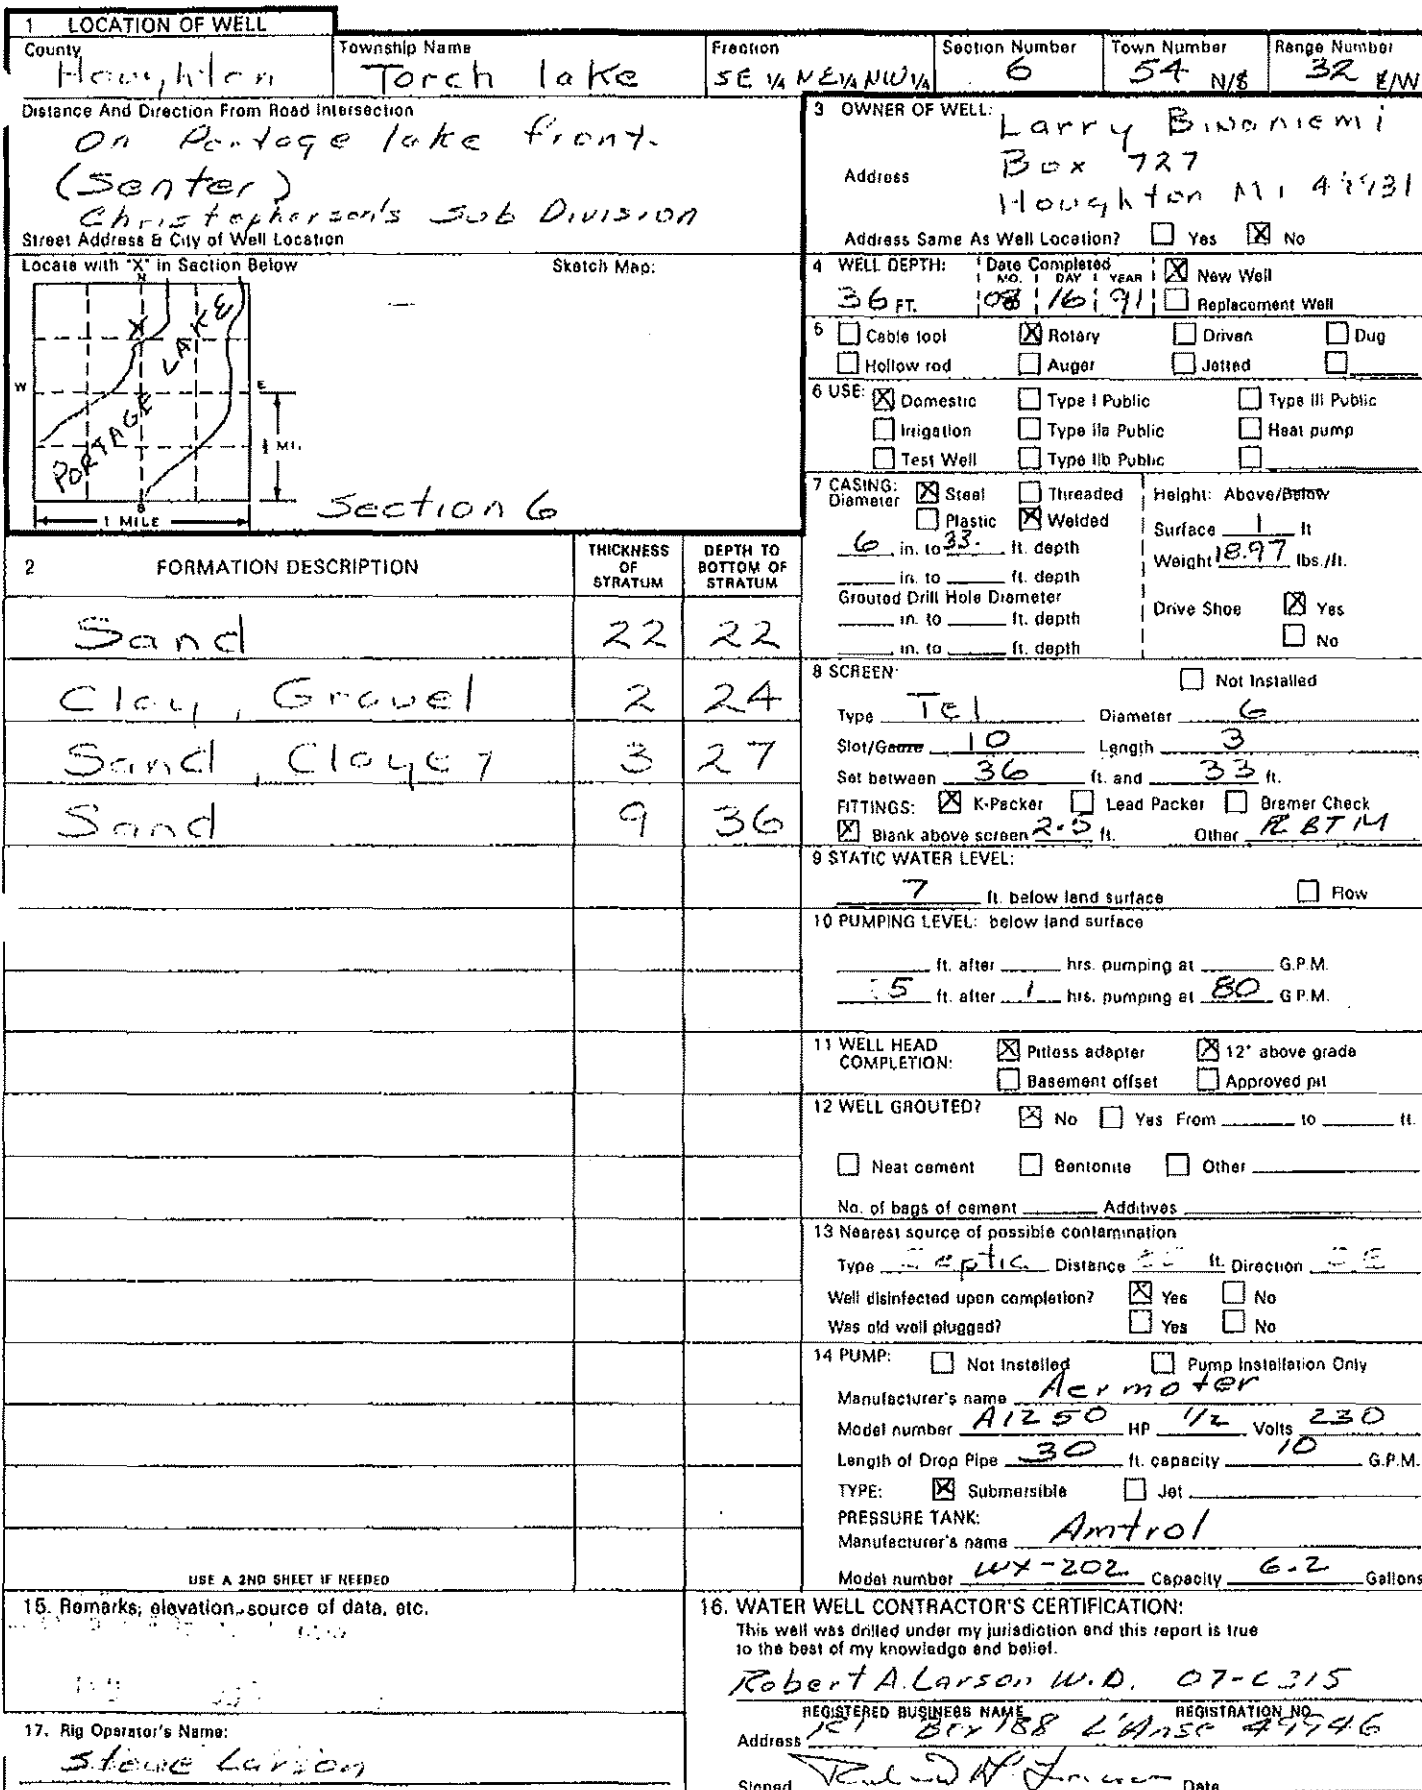 1 LOCATION OF WELL
County Houghton
Township Name Torch lake
Fraction SE 1/4 NE 1/4 NW 1/4
Section Number 6
Town Number 54 N/S
Range Number 32 E/W
Distance And Direction From Road Intersection
On Portage lake front.
(Senter)
Christopherson's Sub Division
Street Address & City of Well Location
Locate with "X" in Section Below
Sketch Map:
N
W
E
S
X
PORTAGE LAKE
1/4 MI.
1 MILE
Section 6
2 FORMATION DESCRIPTION
THICKNESS OF STRATUM
DEPTH TO BOTTOM OF STRATUM
Sand 22 22
Clay, Gravel 2 24
Sand, Clayey 3 27
Sand 9 36
USE A 2ND SHEET IF NEEDED
3 OWNER OF WELL: Larry Binoniemi
Address Box 727
Houghton MI 49931
Address Same As Well Location? Yes X No
4 WELL DEPTH: 36 FT.
Date Completed
MO. DAY YEAR
08 16 91
X New Well
Replacement Well
5 Cable tool X Rotary Driven Dug
Hollow rod Auger Jetted
6 USE: X Domestic Type I Public Type III Public
Irrigation Type IIa Public Heat pump
Test Well Type IIb Public
7 CASING: X Steel Threaded
Diameter Plastic X Welded
6 in. to 33. ft. depth
in. to ft. depth
Grouted Drill Hole Diameter
in. to ft. depth
in. to ft. depth
Height: Above/Below
Surface 1 ft
Weight 18.97 lbs./ft.
Drive Shoe X Yes
No
8 SCREEN: Not Installed
Type Tel Diameter 6
Slot/Gauze 10 Length 3
Set between 36 ft. and 33 ft.
FITTINGS: X K-Packer Lead Packer Bremer Check
X Blank above screen 2.5 ft. Other BTM
9 STATIC WATER LEVEL:
7 ft. below land surface Flow
10 PUMPING LEVEL: below land surface
ft. after hrs. pumping at G.P.M.
5 ft. after 1 hrs. pumping at 80 G.P.M.
11 WELL HEAD COMPLETION: X Pitless adapter X 12" above grade
Basement offset Approved pit
12 WELL GROUTED? X No Yes From to ft.
Neat cement Bentonite Other
No. of bags of cement Additives
13 Nearest source of possible contamination
Type Septic Distance ft. Direction
Well disinfected upon completion? X Yes No
Was old well plugged? Yes No
14 PUMP: Not Installed Pump Installation Only
Manufacturer's name Aermoter
Model number A1250 HP 1/2 Volts 230
Length of Drop Pipe 30 ft. capacity 10 G.P.M.
TYPE: X Submersible Jet
PRESSURE TANK:
Manufacturer's name Amtrol
Model number WX-202 Capacity 6.2 Gallons
15. Remarks; elevation, source of data, etc.
16. WATER WELL CONTRACTOR'S CERTIFICATION:
This well was drilled under my jurisdiction and this report is true
to the best of my knowledge and belief.
Robert A. Larson W.D. 07-C315
REGISTERED BUSINESS NAME REGISTRATION NO.
Address Rt 1 Box 188 L'Anse 49946
Signed Date
17. Rig Operator's Name:
Steve Larson